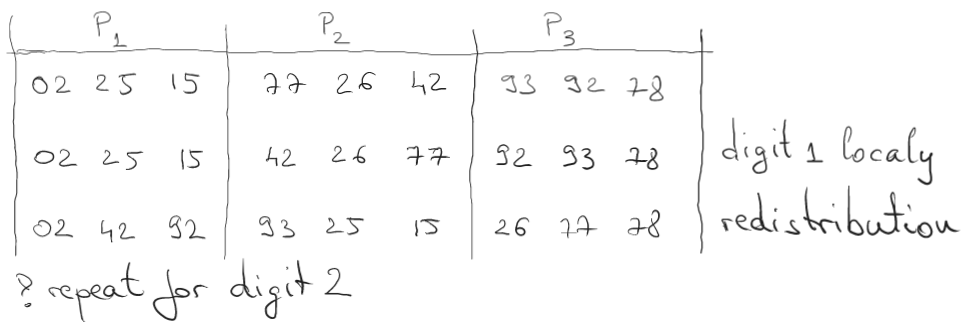 P1 P2 P3
02 25 15 77 26 42 93 92 78
02 25 15 42 26 77 92 93 78 digit 1 localy
02 42 92 93 25 15 26 77 78 redistribution
? repeat for digit 2